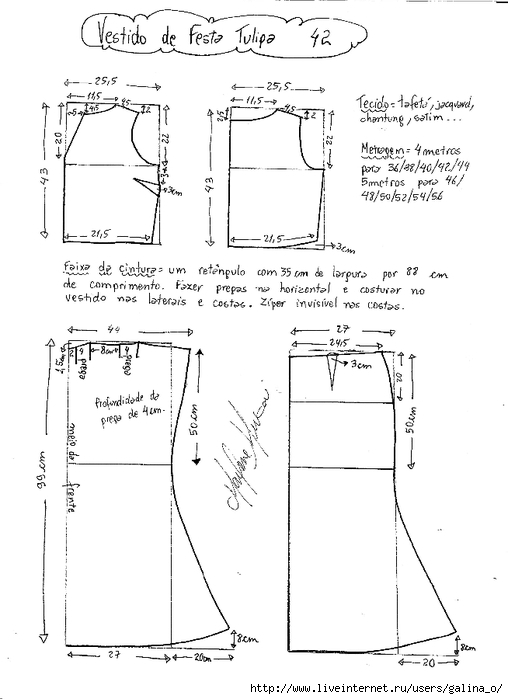 Vestido de Festa Tulipa 42
25,5
11,5
5
4,5
45
2
20
22
43
3
3cm
21,5
25,5
11,5
4,5
2
2,5
22
43
21,5
3cm
Tecido = tafetá, jacquard,
shantung, satim ...
Metragem = 4 metros
para 36/38/40/42/44
5 metros para 46/
48/50/52/54/56
Faixa de cintura = um retângulo com 35 cm de largura por 88 cm
de comprimento. Fazer pregas na horizontal e costurar no
vestido nas laterais e costas. Zíper invisível nas costas.
44
1,5cm
2
4
8cm
4
prega
prega
Profundidade da
prega de 4cm.
50cm
99cm
meio da frente
27
20cm
8cm
27
24,5
3cm
20
50cm
8cm
20
http://www.liveinternet.ru/users/galina_o/